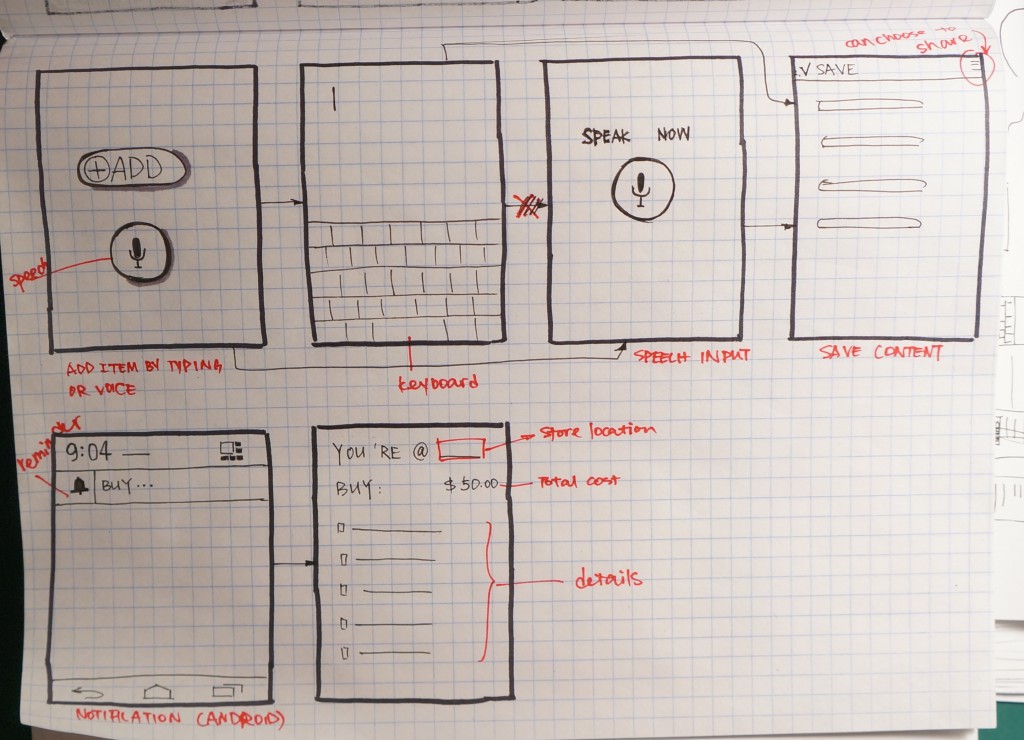 can choose to
share
✓ SAVE
+ ADD
SPEAK NOW
speech
ADD ITEM BY TYPING
OR VOICE
keyboard
SPEECH INPUT
SAVE CONTENT
reminder
9:04
BUY...
NOTIFICATION (ANDROID)
YOU'RE @
store location
BUY: $50.00
Total cost
details